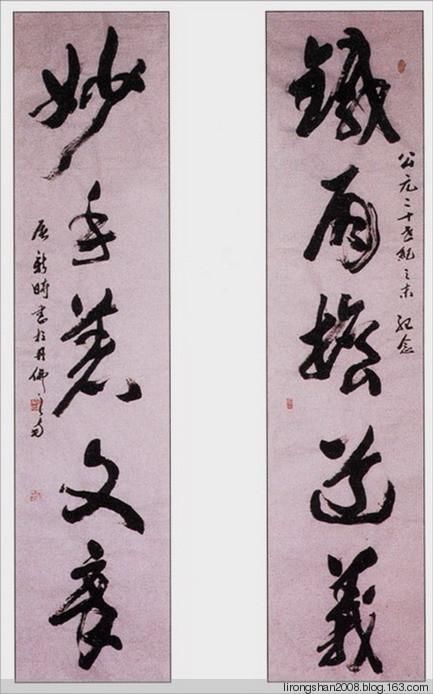 公元二十世紀之末 纪念
鐵肩擔道義
妙手著文章
新時書於丹佛之
lirongshan2008.blog.163.com